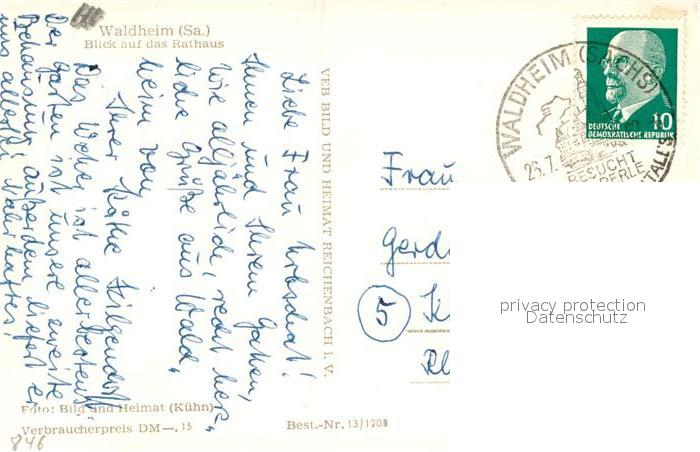 Waldheim (Sa.)
Blick auf das Rathaus
Liebe Frau
Ihnen und Ihrem Gatten,
wie alljährlich, recht herz-
liche Grüße aus Wald-
heim von
Ihrer Käthe
Das Wetter ist allerbestens.
Der Garten ist unsere zweite
Behausung, außerdem liefert er
uns allerlei Nahrhaftes.
VEB BILD UND HEIMAT REICHENBACH i. V.
Foto: Bild und Heimat (Kühn)
Verbraucherpreis DM —.15
Best.-Nr. 13/1208
846
WALDHEIM (SACHS)
26.7.
BESUCHT
PERLE
TALES
DEUTSCHE
DEMOKRATISCHE REPUBLIK
10
Frau
Gerd
5 K
Rl
privacy protection
Datenschutz